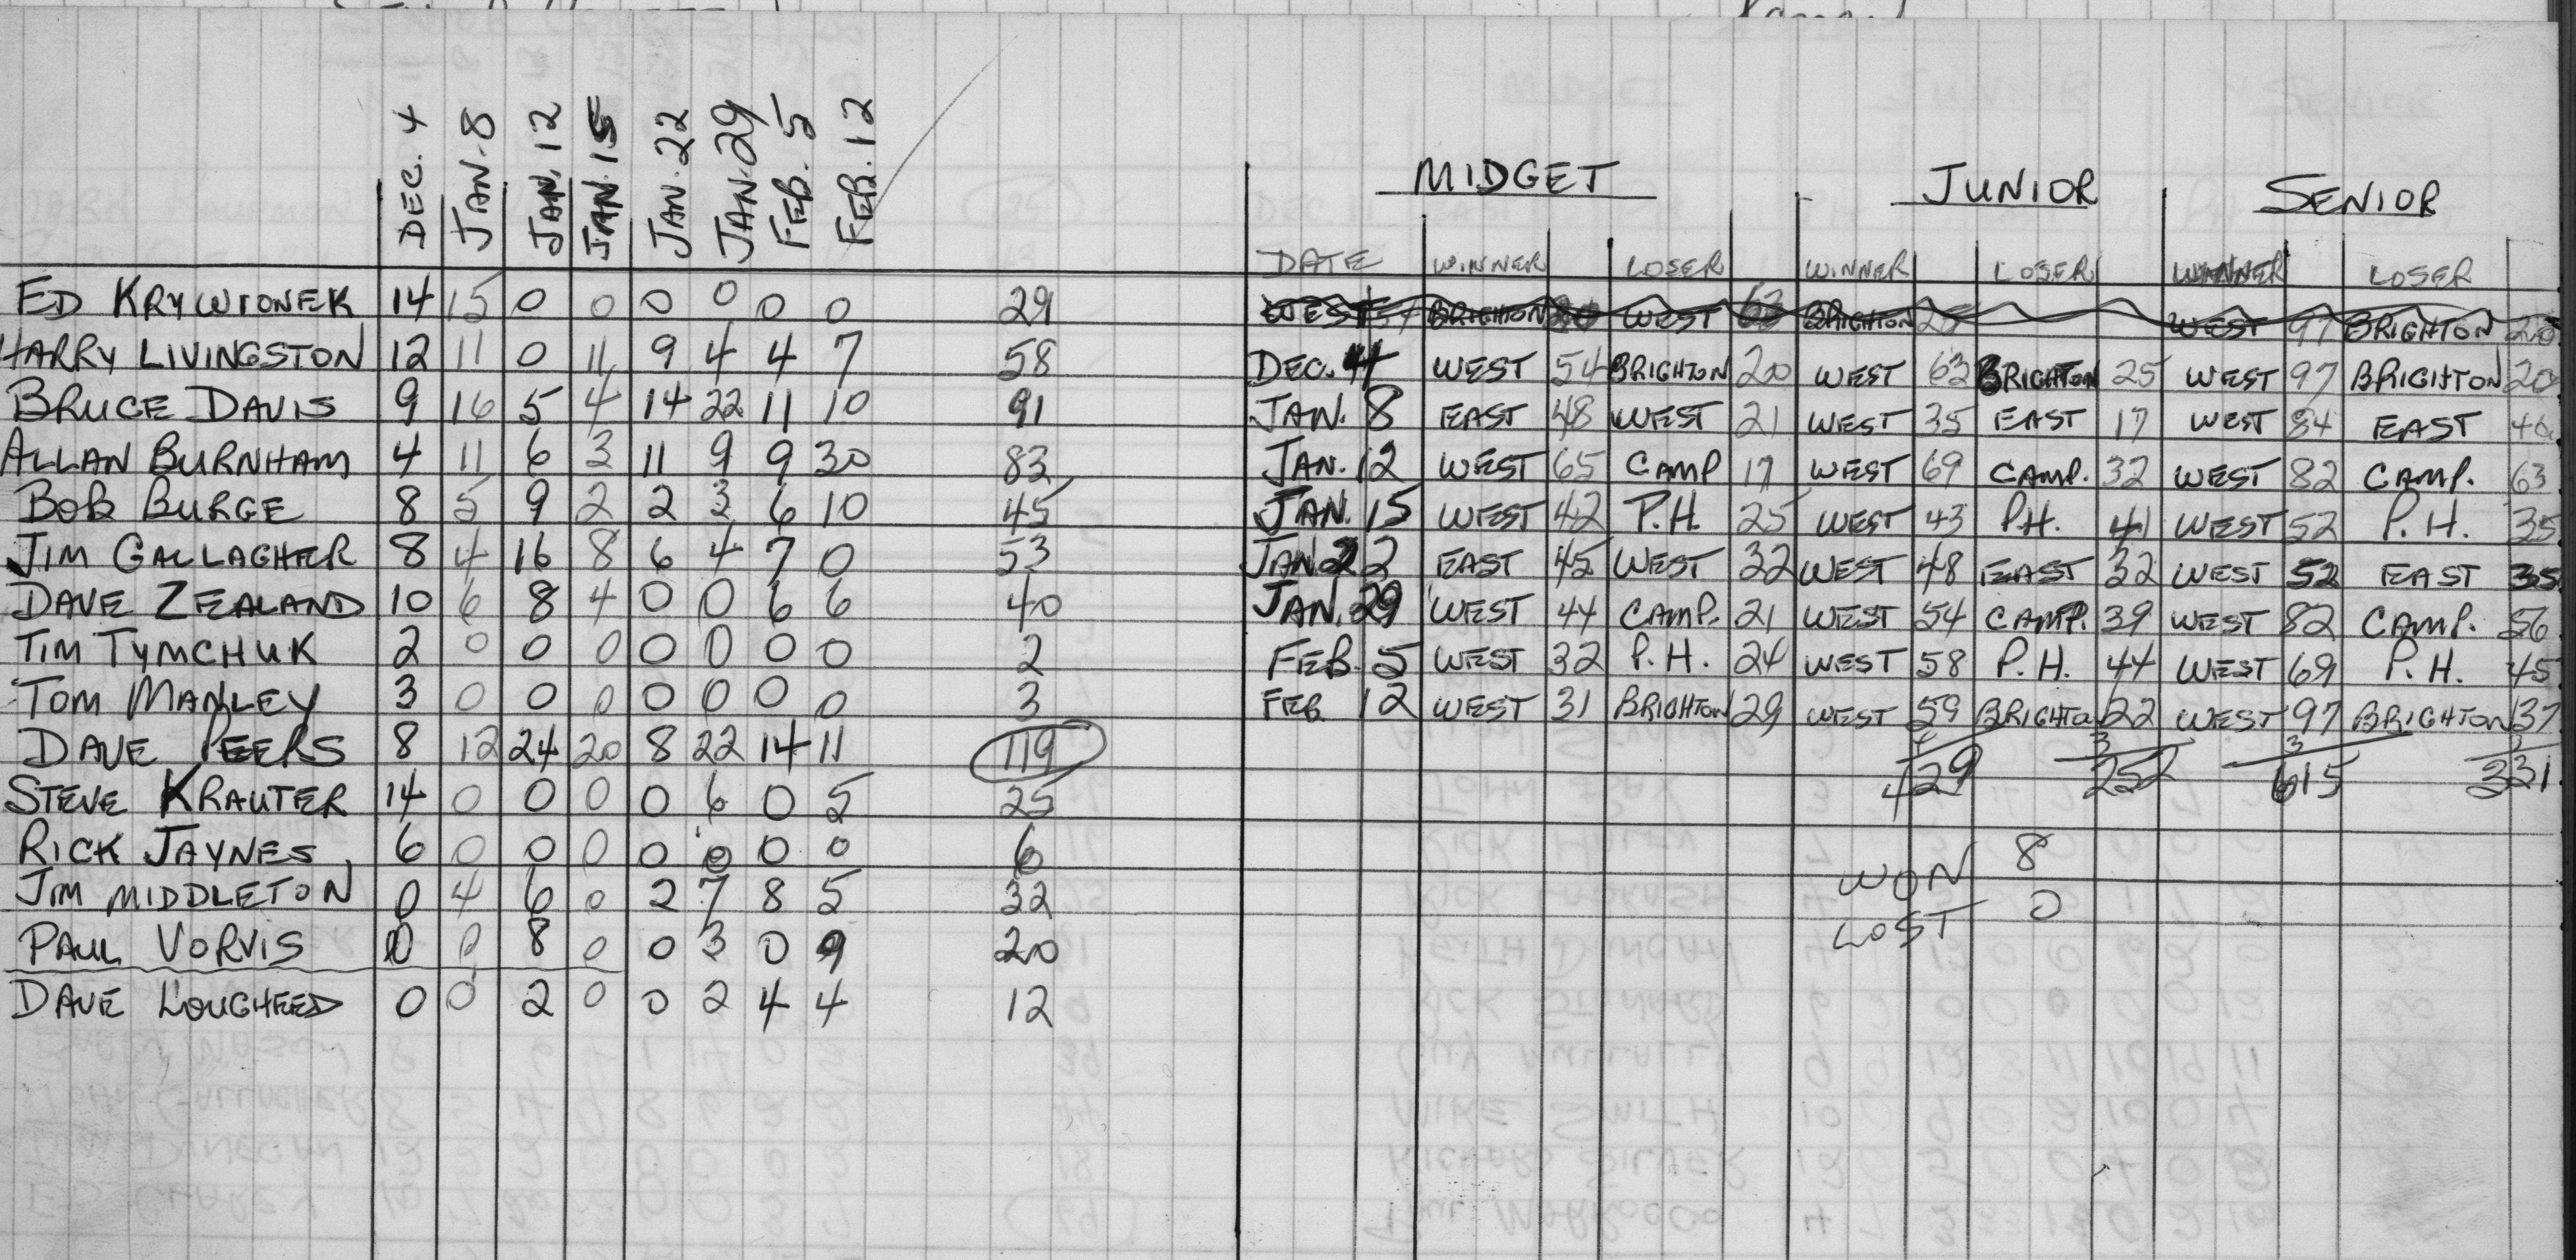 DEC. 4 JAN. 8 JAN. 12 JAN. 15 JAN. 22 JAN. 29 FEB. 5 FEB. 12
ED KRYWIONEK 14 15 0 0 0 0 0 0 29
HARRY LIVINGSTON 12 11 0 11 9 4 4 7 58
BRUCE DAVIS 9 16 5 4 14 22 11 10 91
ALLAN BURNHAM 4 11 6 3 11 9 9 30 83
BOB BURGE 8 5 9 2 2 3 6 10 45
JIM GALLAGHER 8 4 16 8 6 4 7 0 53
DAVE ZEALAND 10 6 8 4 0 0 6 6 40
TIM TYMCHUK 2 0 0 0 0 0 0 0 2
TOM MANLEY 3 0 0 0 0 0 0 0 3
DAVE PEERS 8 12 24 20 8 22 14 11 119
STEVE KRAUTER 14 0 0 0 0 6 0 5 25
RICK JAYNES 6 0 0 0 0 0 0 0 6
JIM MIDDLETON 0 4 6 0 2 7 8 5 32
PAUL VORVIS 0 0 8 0 0 3 0 9 20
DAVE LOUGHEED 0 0 2 0 0 2 4 4 12
MIDGET JUNIOR SENIOR
DATE WINNER LOSER WINNER LOSER WINNER LOSER
WEST BRIGHTON WEST 63 BRIGHTON 25 WEST 97 BRIGHTON 20
DEC. 4 WEST 54 BRIGHTON 20 WEST 63 BRIGHTON 25 WEST 97 BRIGHTON 20
JAN. 8 EAST 48 WEST 21 WEST 35 EAST 17 WEST 84 EAST 40
JAN. 12 WEST 65 CAMP 17 WEST 69 CAMP. 32 WEST 82 CAMP. 63
JAN. 15 WEST 42 P.H. 25 WEST 43 P.H. 41 WEST 52 P.H. 35
JAN 22 EAST 45 WEST 32 WEST 48 EAST 32 WEST 52 EAST 35
JAN. 29 WEST 44 CAMP. 21 WEST 54 CAMP. 39 WEST 82 CAMP. 56
FEB. 5 WEST 32 P.H. 24 WEST 58 P.H. 44 WEST 69 P.H. 45
FEB 12 WEST 31 BRIGHTON 29 WEST 59 BRIGHTO 22 WEST 97 BRIGHTON 37
4 3 3 3
429 252 615 331
WON 8
LOST 0